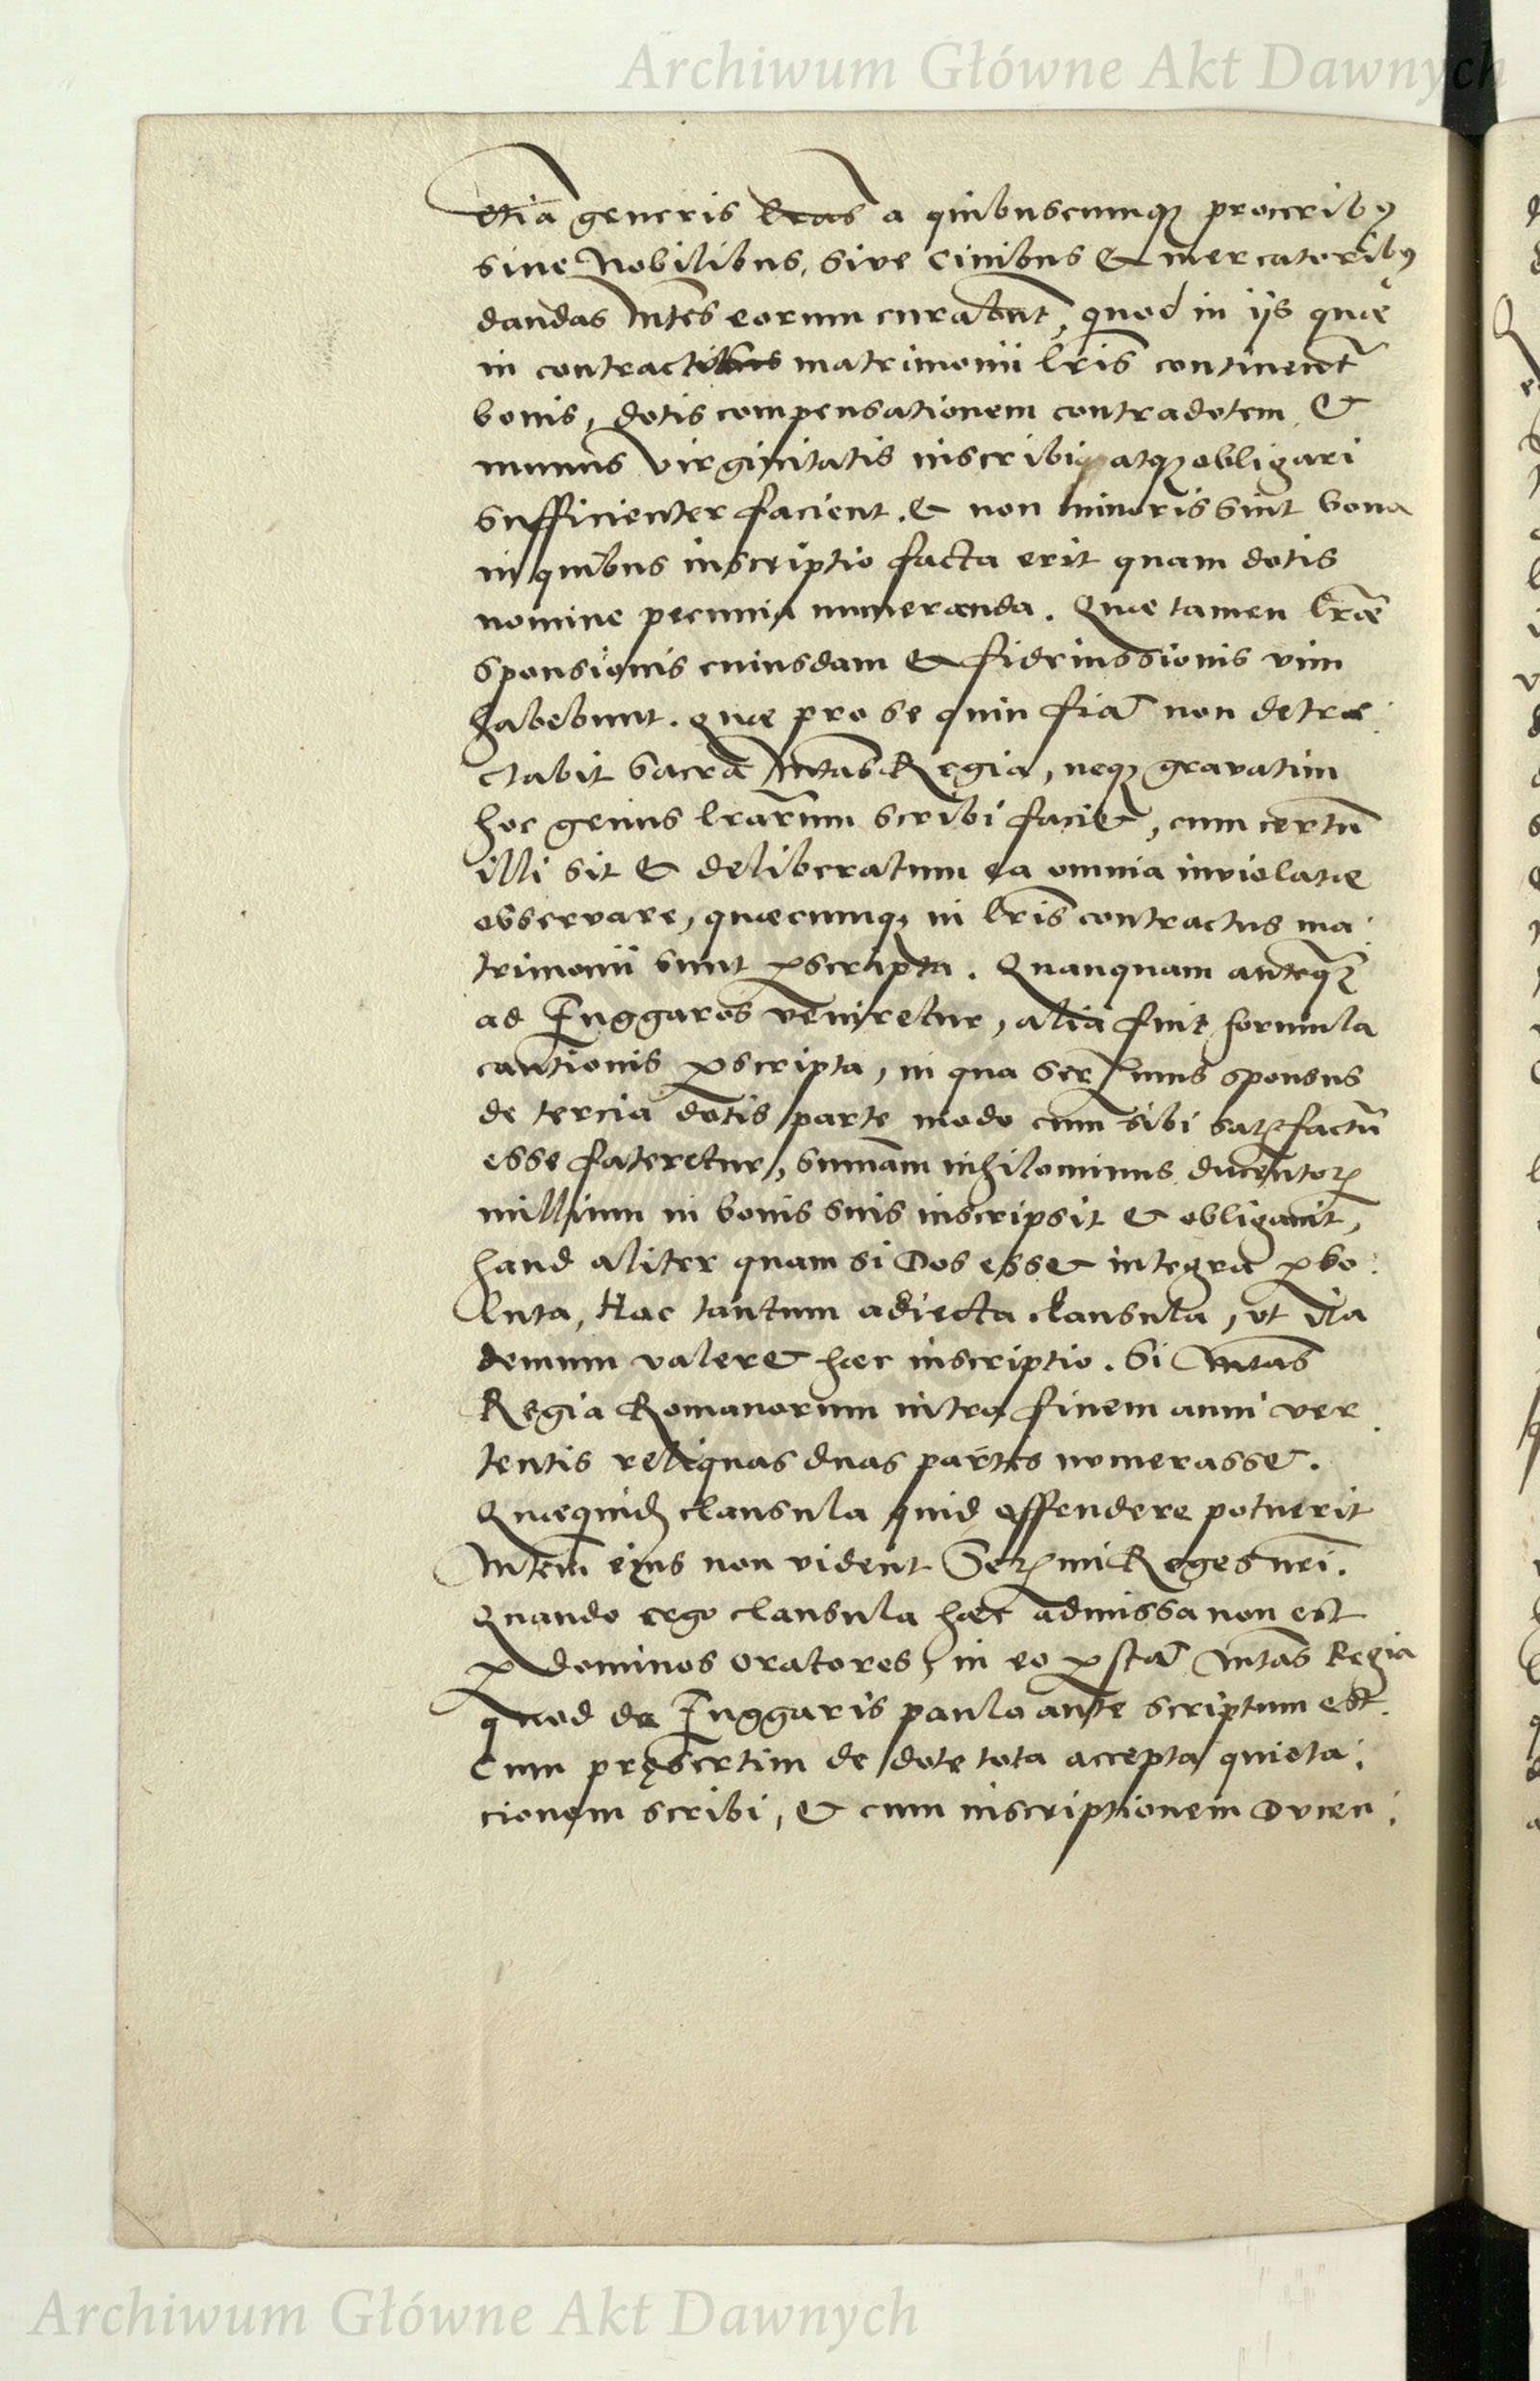 Archiwum Główne Akt Dawnych
etiā generis lr̃as a quibuscumqȝ proceribꝰ
sive Nobilibus, sive Civibus & mercatoribꝰ
dandas Mtēs eorum curabunt, quod in ijs quæ
in contractibus matrimonii lr̃is continent᷑
bonis, dotis compensationem contradotem &
munus virginitatis inscribi atqȝ obligari
sufficienter facient. & non minoris sint bona
in quibus inscriptio facta erit quam dotis
nomine pecunia numeranda. Quæ tamen lr̃æ
sponsionis cuiusdam & fideiussionis vim
habebunt. quæ pro se quin fiāt non detræ:
ctabit Sacra Mtas Regia, neqȝ gravatim
hoc genus lr̃arum scribi faciet, cum certū
illi sit & deliberatum ea omnia inviolatæ
observare, quæcumqȝ in lr̃is contractus ma:
trimonii sunt ꝑscripta. Quanquam anteqȝ̄
ad Fuggaros veniretur, alia fuit formula
cautionis ꝑscripta, in qua Serᵐus sponsus
de tercia dotis parte modo cum sibi satisfactū
esse fateretur, summam nihilominus ducentoꝝ
millium in bonis suis inscripsit & obligavit,
haud aliter quam si Dos esset integra ꝑso:
luta, Hac tantum adiecta clausula, ut ita
demum valeret hæc inscriptio. Si Mtas
Regia Romanorum intra finem anni ver:
tentis reliquas duas partes numerasset.
Quæquid̄ clausula quid offendere potuerit
Mtem eius non vident Serᵐi Reges nr̃i.
Quando ergo clausula hæc admissa non est
ꝑ dominos oratores, in eo ꝑstat Mtas Regia
quod de Fuggaris paulo ante scriptum est.
Cum pręsertim de dote tota accepta quieta:
cionem scribi, & cum inscriptionem Ducen:
Archiwum Główne Akt Dawnych